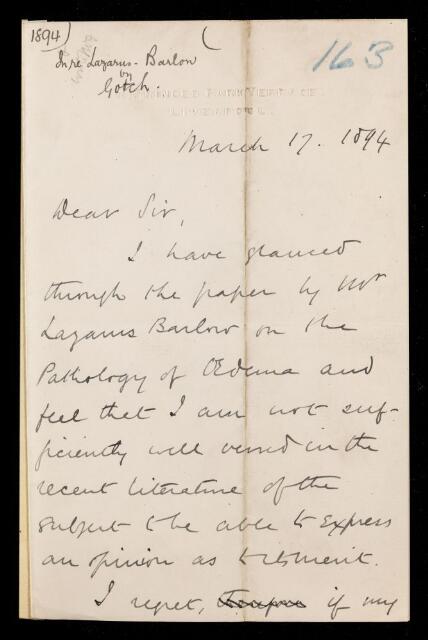 1894)
In re Lazarus-Barlow
by
Gotch.
163
PRINCES PARK TERRACE,
LIVERPOOL.
March 17. 1894
Dear Sir,
I have glanced
through the paper by Mr
Lazarus Barlow on the
Pathology of Œdema and
feel that I am not suf-
ficiently well versed in the
recent literature of the
subject to be able to express
an opinion as to its merit.
I regret, if my